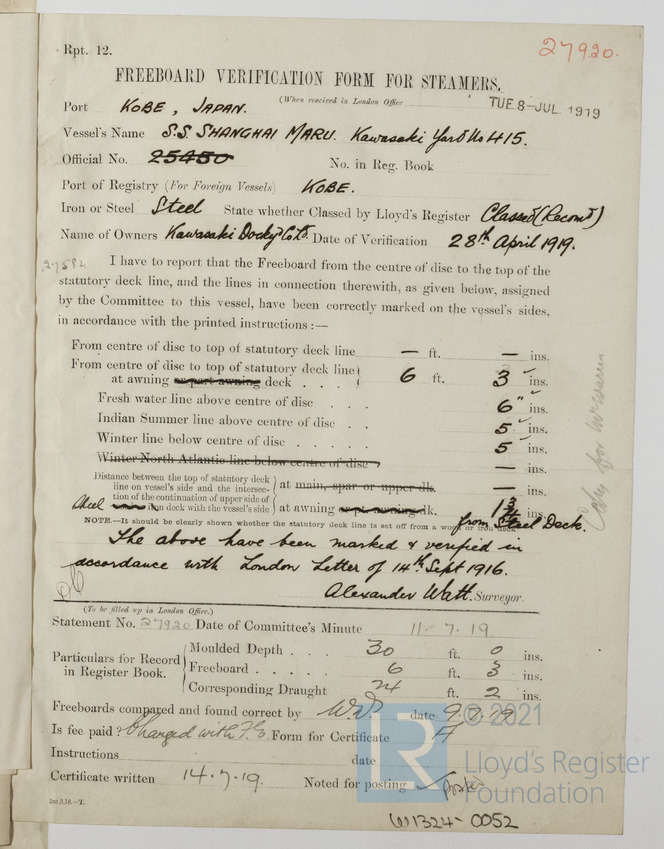 Rpt. 12.
27920.
FREEBOARD VERIFICATION FORM FOR STEAMERS.
(When received in London Office
TUE 8-JUL 1919
Port KOBE, JAPAN.
Vessel's Name S.S. SHANGHAI MARU. Kawasaki Yard No 415.
Official No. 25450 No. in Reg. Book
Port of Registry (For Foreign Vessels) KOBE.
Iron or Steel Steel State whether Classed by Lloyd's Register Classed (Recont)
Name of Owners Kawasaki Dockyd Co Ld. Date of Verification 28th April 1919.
27582
I have to report that the Freeboard from the centre of disc to the top of the
statutory deck line, and the lines in connection therewith, as given below, assigned
by the Committee to this vessel, have been correctly marked on the vessel's sides,
in accordance with the printed instructions :—
From centre of disc to top of statutory deck line — ft. — ins.
From centre of disc to top of statutory deck line
at awning or part awning deck . . . 6 ft. 3 ins.
Fresh water line above centre of disc . . . 6" ins.
Indian Summer line above centre of disc . . 5 ins.
Winter line below centre of disc . . . . 5 ins.
Winter North Atlantic line below centre of disc — ins.
Distance between the top of statutory deck
line on vessel's side and the intersec-
tion of the continuation of upper side of
iron deck with the vessel's side
at main, spar or upper dk. — ins.
at awning or pt. awning dk. 1 3/4 ins.
from Steel Deck.
NOTE.—It should be clearly shown whether the statutory deck line is set off from a wood or iron deck
The above have been marked & verified in
accordance with London Letter of 14th Sept 1916.
Alexander Watt. Surveyor.
(To be filled up in London Office.)
Statement No. 27920 Date of Committee's Minute 11-7.19
Particulars for Record
in Register Book.
Moulded Depth . . 30 ft. 0 ins.
Freeboard . . . . 6 ft. 3 ins.
Corresponding Draught 24 ft. 2 ins.
Freeboards compared and found correct by date 9.7.19
Is fee paid? Charged with F.E. Form for Certificate
Instructions date
Certificate written 14.7.19. Noted for posting
2m3,18.—T.
© 2021
Lloyd's Register
Foundation
W1324-0052